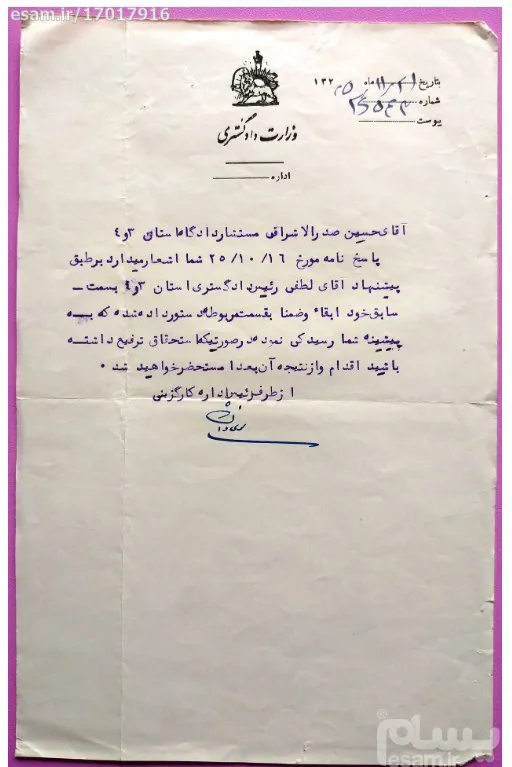 esam.ir/17017916
بتاریخ ۲۱ / ۱۱ ماه ۱۳۲۵
شماره
پیوست
وزارت دادگستری
اداره
آقای حسین صدرالاشرافی مستشار دادگاه استان ۳و٤
پاسخ نامه مورخ ۲۵/۱۰/۱۶ شما اشعار میدارد برطبق
پیشنهاد آقای لطفی رئیس دادگستری استان ۳و٤ بسمت
سابق خود ابقاء وضمنا بقسمت مربوطه دستور داده شده که به
پیشینه شما رسیدگی نموده درصورتیکه استحقاق ترفیع داشته
باشید اقدام وازنتیجه آن بعدا مستحضر خواهید شد ۰
ازطرف رئیس اداره کارگزینی
esam.ir